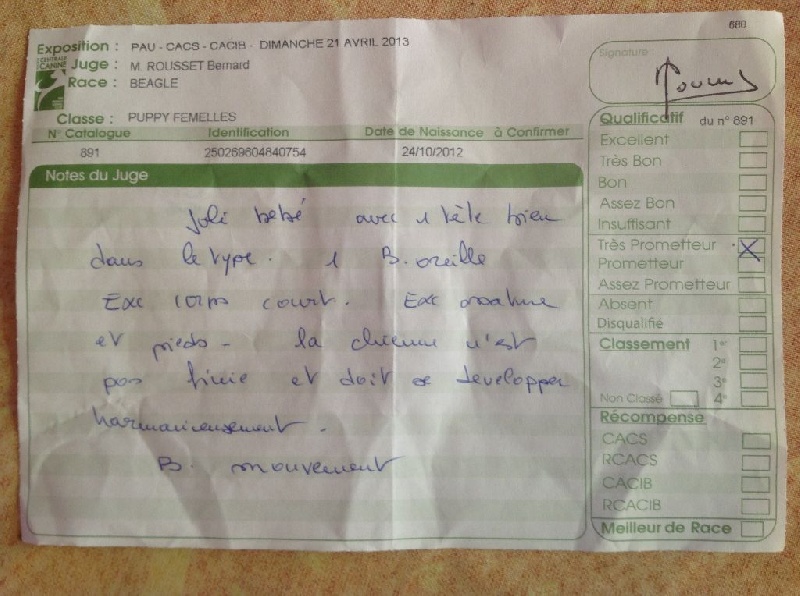 680
Exposition : PAU - CACS - CACIB - DIMANCHE 21 AVRIL 2013
CENTRALE CANINE
Juge : M. ROUSSET Bernard
Race : BEAGLE
Classe : PUPPY FEMELLES
N° Catalogue Identification Date de Naissance à Confirmer
891 250269604840754 24/10/2012
Notes du Juge
Joli bébé avec 1 tête bien
dans le type. 1 B. oreille
Exc corps court. Exc ossature
et pieds - la chienne n'est
pas finie et doit se developper
harmonieusement.
B. mouvement
Signature
Qualificatif du n° 891
Excellent
Très Bon
Bon
Assez Bon
Insuffisant
Très Prometteur X
Prometteur
Assez Prometteur
Absent
Disqualifié
Classement 1er
2e
3e
Non Classé 4e
Récompense
CACS
RCACS
CACIB
RCACIB
Meilleur de Race